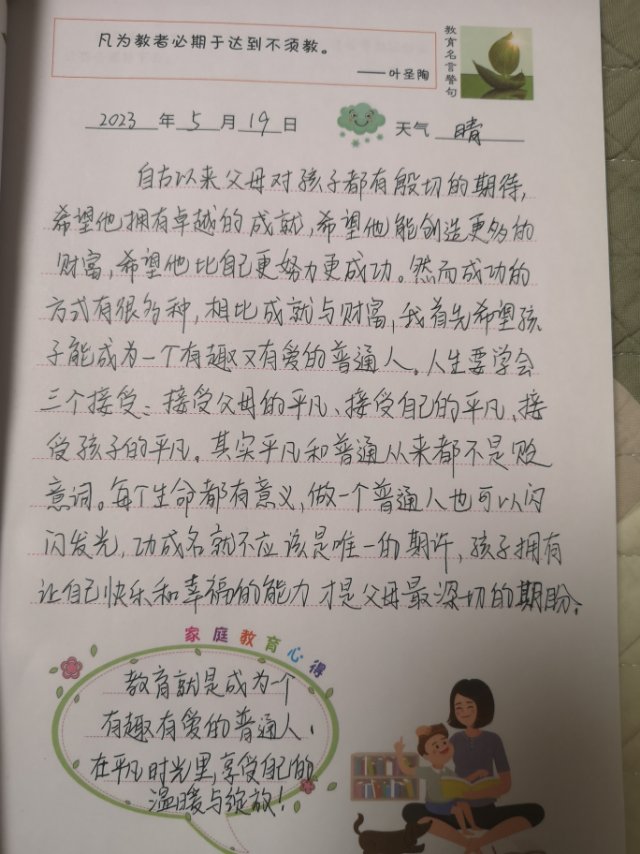 凡为教者必期于达到不须教。
——叶圣陶
教育名言警句
2023 年 5 月 19 日 天气 晴
自古以来父母对孩子都有殷切的期待,
希望他拥有卓越的成就,希望他能创造更多的
财富,希望他比自己更努力更成功。然而成功的
方式有很多种,相比成就与财富,我首先希望孩
子能成为一个有趣又有爱的普通人。人生要学会
三个接受:接受父母的平凡、接受自己的平凡、接
受孩子的平凡。其实平凡和普通从来都不是贬
意词。每个生命都有意义,做一个普通人也可以闪
闪发光,功成名就不应该是唯一的期许,孩子拥有
让自己快乐和幸福的能力才是父母最深切的期盼。
家庭教育心得
教育就是成为一个
有趣有爱的普通人,
在平凡时光里,享受自己的
温暖与绽放!